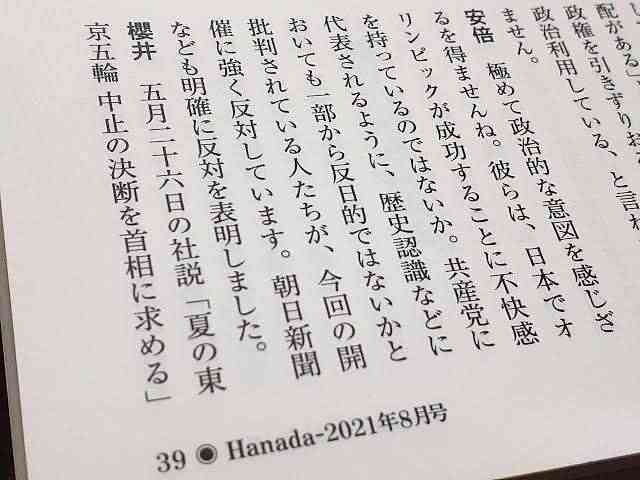 配がある」
政権を引きずりお
政治利用している、と言わ
ません。
安倍 極めて政治的な意図を感じざ
るを得ませんね。彼らは、日本でオ
リンピックが成功することに不快感
を持っているのではないか。共産党に
代表されるように、歴史認識などに
おいても一部から反日的ではないかと
批判されている人たちが、今回の開
催に強く反対しています。朝日新聞
なども明確に反対を表明しました。
櫻井 五月二十六日の社説「夏の東
京五輪 中止の決断を首相に求める」
39 ◉ Hanada-2021年8月号